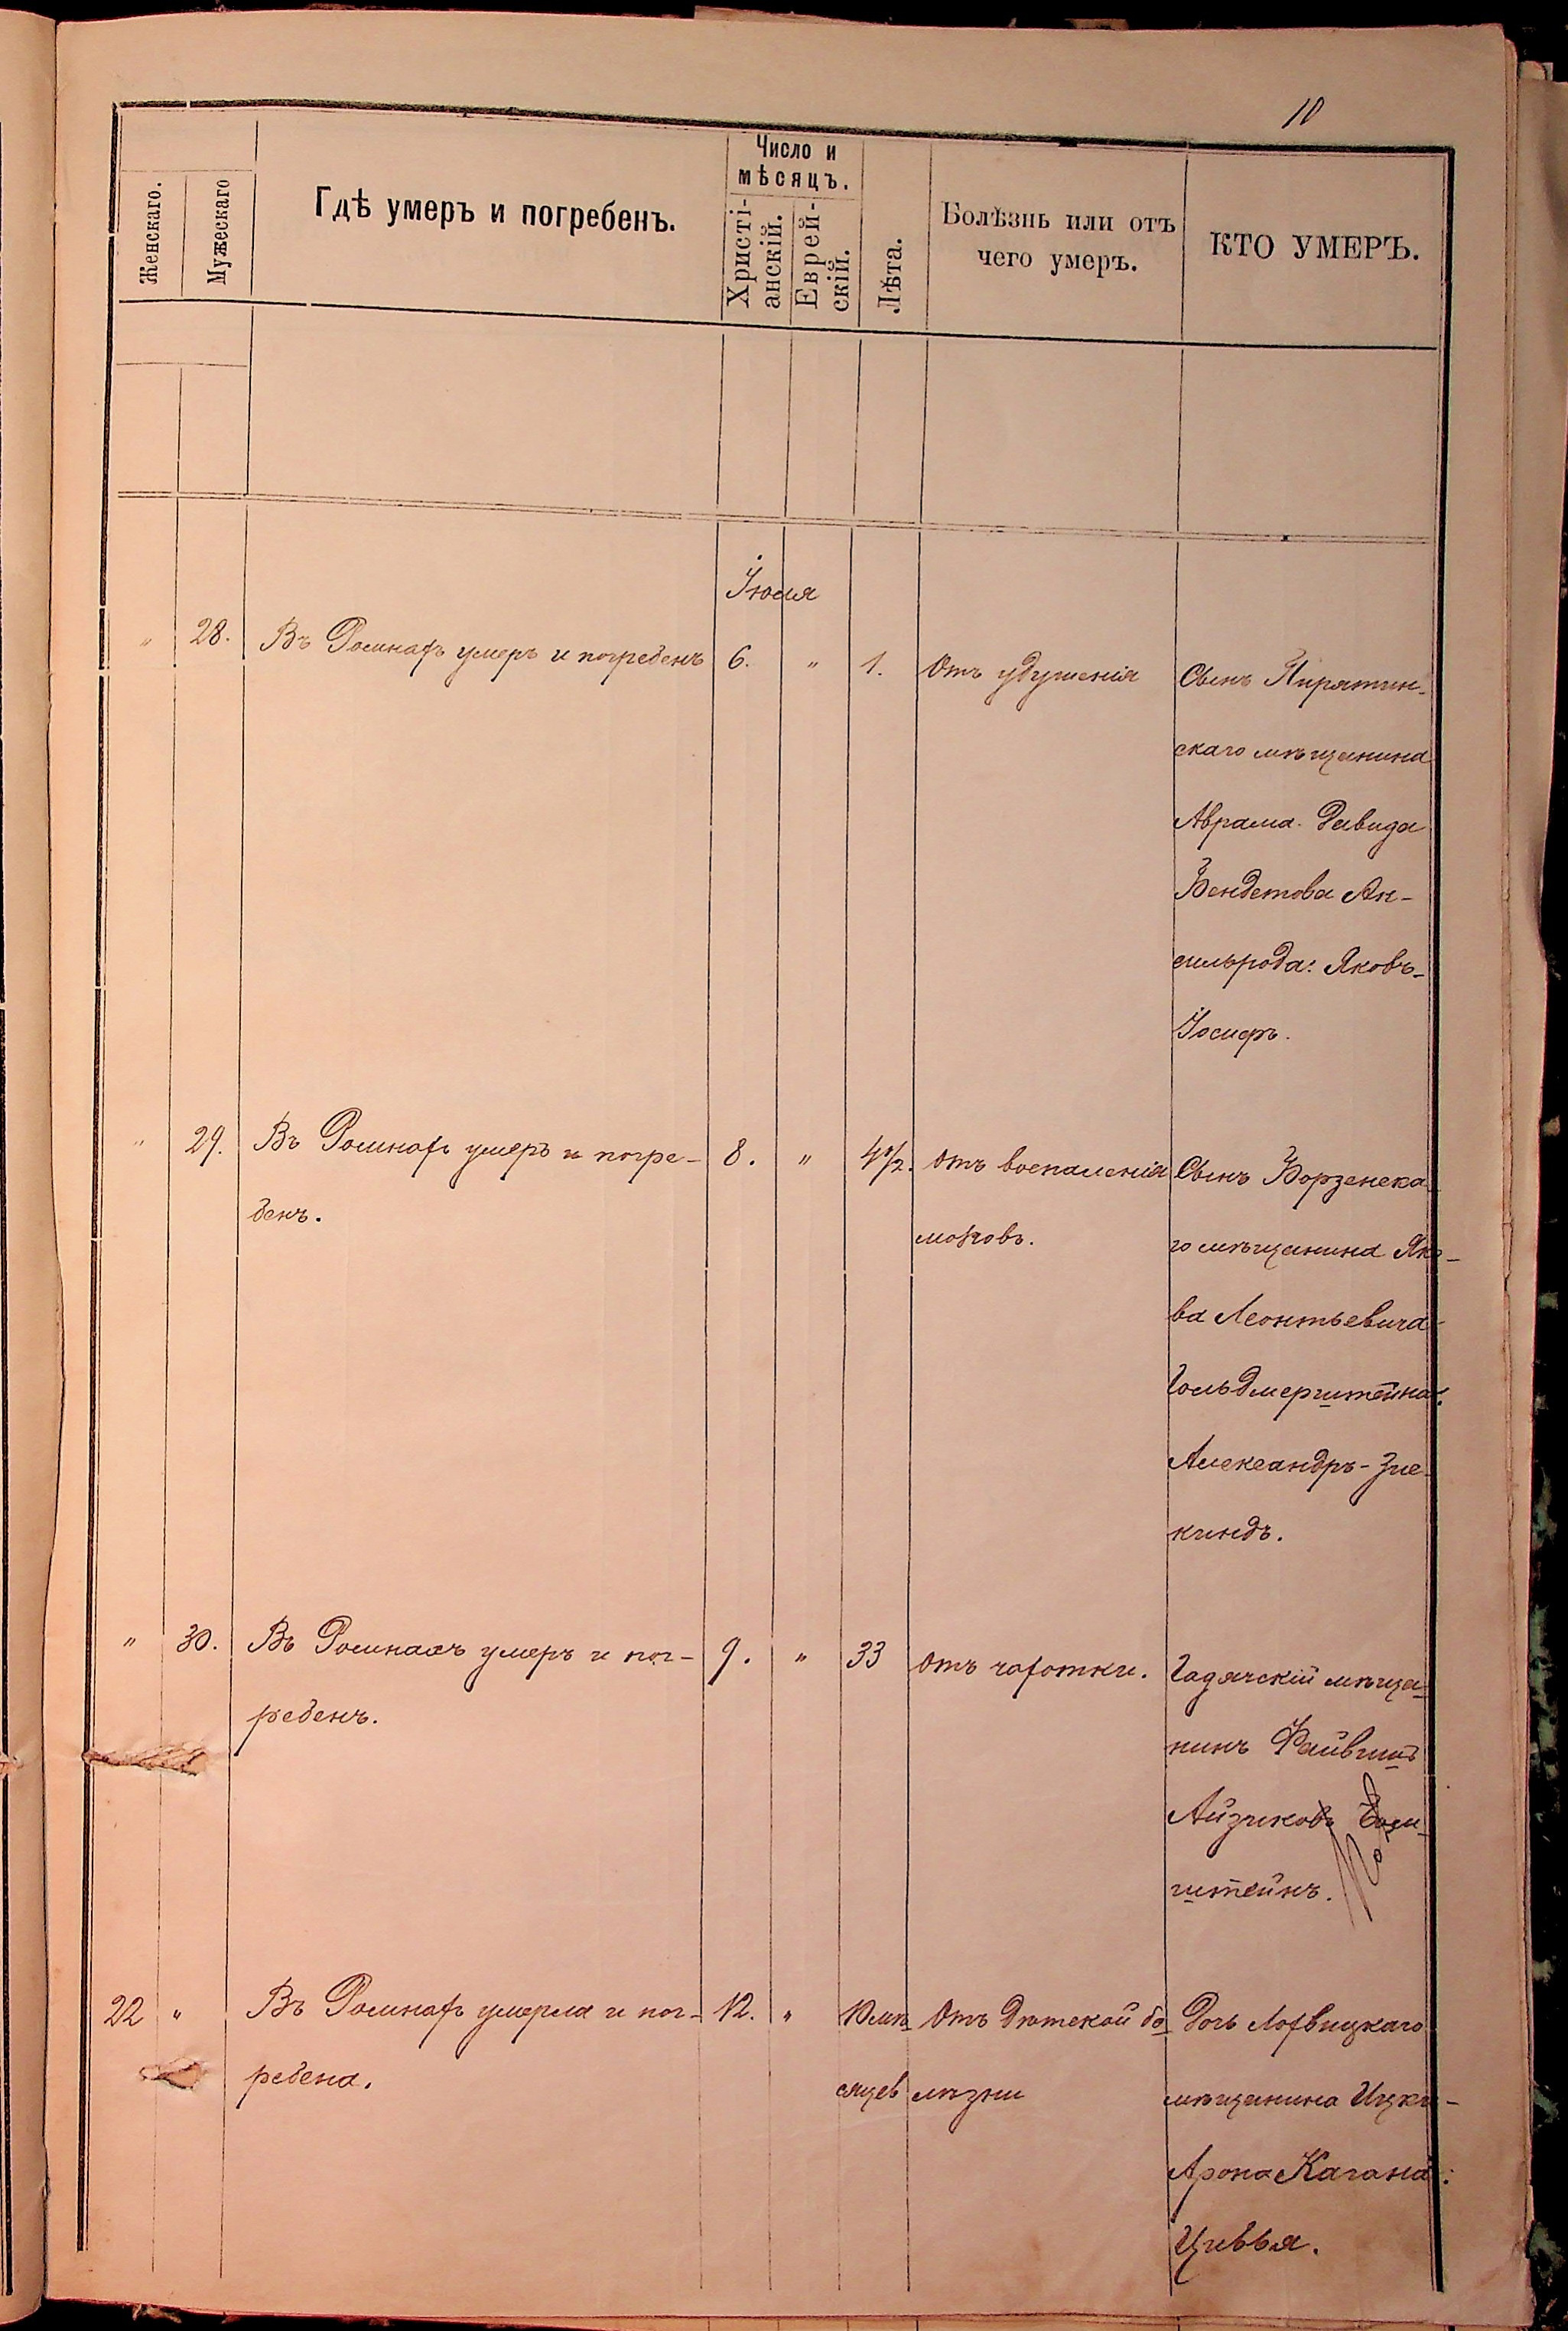 10
Женскаго.
Мужескаго
Гдѣ умеръ и погребенъ.
Число и
мѣсяцъ.
Христі-
анскій.
Еврей-
скій.
Лѣта.
Болѣзнь или отъ
чего умеръ.
КТО УМЕРЪ.
Іюля
" 28. Въ Ромнахъ умеръ и погребенъ 6. " 1. Отъ удушенія Сынъ Пирятин-
скаго мѣщанина
Аврама-Давида
Бендетова Ан-
сильрода: Яковъ-
Іосифъ.
" 29. Въ Ромнахъ умеръ и погре- 8. " 4 1/2. отъ воспаленія Сынъ Борзенска-
бенъ. мозговъ. го мѣщанина Яко-
ва Леонтьевича
Гольдмерштейна:
Александръ-Зис-
киндъ.
" 30. Въ Ромнахъ умеръ и пог- 9. " 33 отъ чахотки. Гадячскій мѣща-
ребенъ. нинъ Файвишъ
Айзиковъ
штейнъ.
22 " Въ Ромнахъ умерла и пог- 12. " 10 мѣ- Отъ дѣтской бо- Дочь Лохвицкаго
ребена. сяцев лѣзни мѣщанина Ицки-
Арона Кагана:
Цивья.